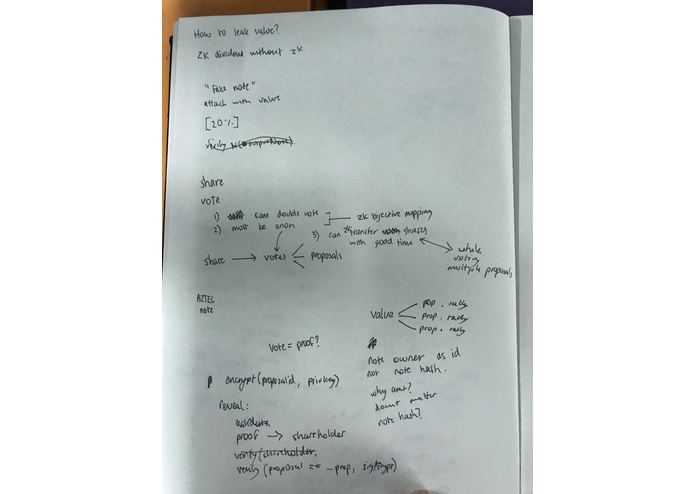 How to leak value?
ZK dividend without zk
"Fake note"
attach with value
[20%]
share
vote
1) cant double vote
2) must be anon
zk bijective mapping
3) can zk transfer shares
with good time
while
voting
multiple proposals
share → votes
proposals
AZTEC
note
value
prop. tally
prop. tally
prop. tally
vote = proof?
note owner as id
not note hash.
encrypt(proposalid, privkey)
why amt?
doesnt matter
note hash?
reveal:
proof → shareholder
verify(shareholder,
verify(proposal == _prop,